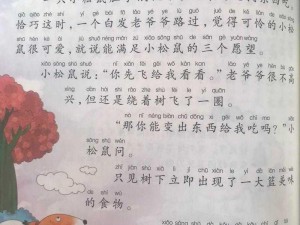 qià qiǎo zhè shí yí gè bái fà lǎo yé ye lù guò jué de kě lián de xiǎo sōng
恰巧这时，一个白发老爷爷路过，觉得可怜的小松
shǔ hěn kě ài jiù shuō néng mǎn zú xiǎo sōng shǔ de sān gè yuàn wàng
鼠很可爱，就说能满足小松鼠的三个愿望。
xiǎo sōng shǔ shuō nǐ xiān fēi gěi wǒ kàn kan lǎo yé ye hěn bù gāo
小松鼠说：“你先飞给我看看。”老爷爷很不高
xìng dàn hái shi rào zhe shù fēi le yì quān
兴，但还是绕着树飞了一圈。
nà nǐ néng biàn chū dōng xi gěi wǒ chī ma xiǎo
“那你能变出东西给我吃吗？”小
sōng shǔ wèn
松鼠问。
zhǐ jiàn shù xià lì jí chū xiàn le yí dà lán měi wèi
只见树下立即出现了一大篮美味
de shí wù
的食物。